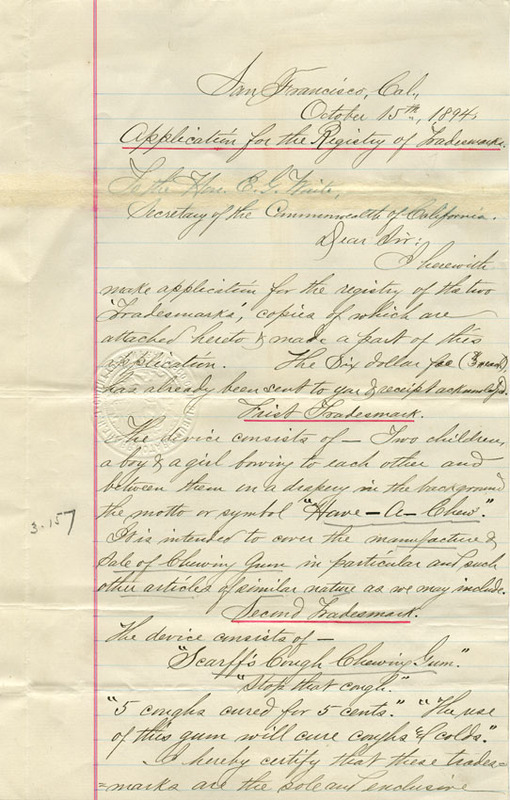 San Francisco, Cal.,
October 15th, 1894.
Application for the Registry of Tradesmarks.
To the Hon. E. G. Waite,
Secretary of the Commonwealth of California.
Dear Sir:
I herewith
make application for the registry of the two
"Tradesmarks", copies of which are
attached hereto & made a part of this
application. The Six dollar fee (3 each)
has already been sent to you & receipt acknowledged.
First Tradesmark.
The device consists of — Two children,
a boy & a girl bowing to each other and
between them in a drapery in the background
the motto or symbol "Have-A-Chew."
It is intended to cover the manufacture &
Sale of Chewing Gum in particular and such
other articles of similar nature as we may include.
3-157
Second Tradesmark.
The device consists of —
"Scarff's Cough Chewing Gum."
"Stop that cough."
"5 coughs cured for 5 cents." "The use
of this gum will cure coughs & colds."
I hereby certify that these trades=
=marks are the sole and exclusive